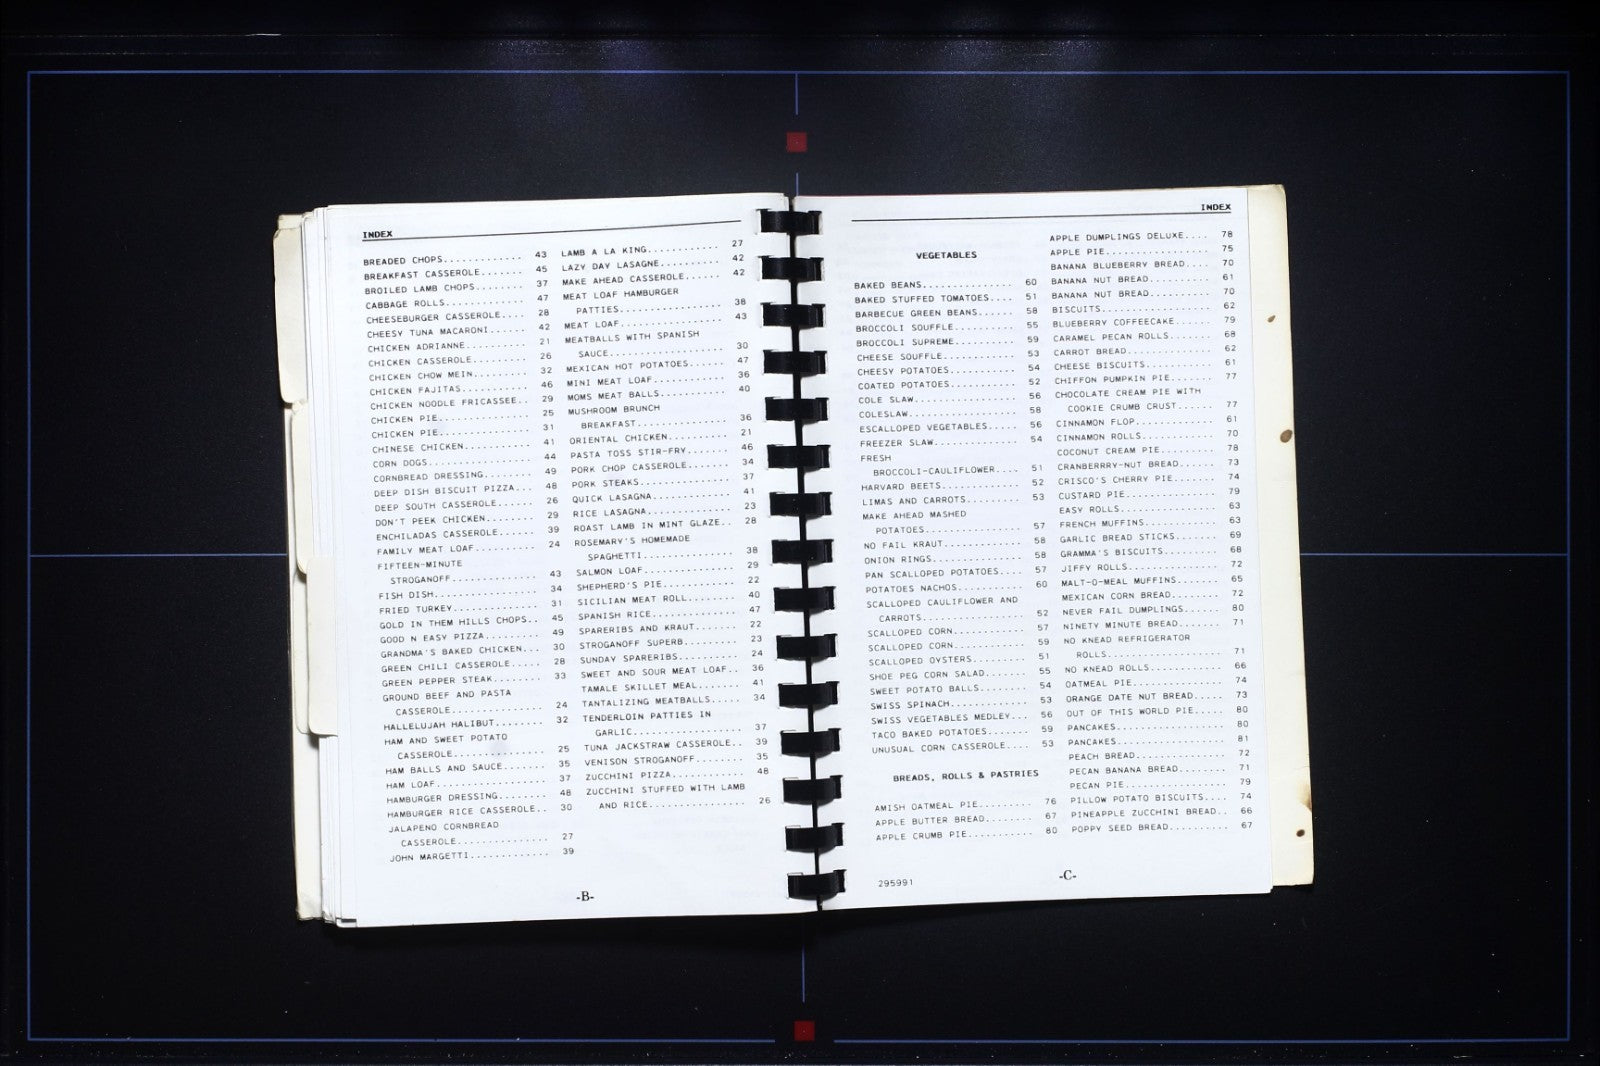 INDEX
BREADED CHOPS............. 43
BREAKFAST CASSEROLE....... 45
BROILED LAMB CHOPS........ 37
CABBAGE ROLLS............. 47
CHEESEBURGER CASSEROLE.... 28
CHEESY TUNA MACARONI...... 42
CHICKEN ADRIANNE.......... 21
CHICKEN CASSEROLE......... 26
CHICKEN CHOW MEIN......... 32
CHICKEN FAJITAS........... 46
CHICKEN NOODLE FRICASSEE.. 29
CHICKEN PIE............... 25
CHICKEN PIE............... 31
CHINESE CHICKEN........... 41
CORN DOGS................. 44
CORNBREAD DRESSING........ 49
DEEP DISH BISCUIT PIZZA... 48
DEEP SOUTH CASSEROLE...... 26
DON'T PEEK CHICKEN........ 29
ENCHILADAS CASSEROLE...... 39
FAMILY MEAT LOAF.......... 24
FIFTEEN-MINUTE
STROGANOFF.............. 43
FISH DISH................. 34
FRIED TURKEY.............. 31
GOLD IN THEM HILLS CHOPS.. 45
GOOD N EASY PIZZA......... 49
GRANDMA'S BAKED CHICKEN... 30
GREEN CHILI CASSEROLE..... 28
GREEN PEPPER STEAK........ 33
GROUND BEEF AND PASTA
CASSEROLE............... 24
HALLELUJAH HALIBUT........ 32
HAM AND SWEET POTATO
CASSEROLE............... 25
HAM BALLS AND SAUCE....... 35
HAM LOAF.................. 37
HAMBURGER DRESSING........ 48
HAMBURGER RICE CASSEROLE.. 30
JALAPENO CORNBREAD
CASSEROLE............... 27
JOHN MARGETTI............. 39
LAMB A LA KING............ 27
LAZY DAY LASAGNE.......... 42
MAKE AHEAD CASSEROLE...... 42
MEAT LOAF HAMBURGER
PATTIES................. 38
MEAT LOAF................. 43
MEATBALLS WITH SPANISH
SAUCE................... 30
MEXICAN HOT POTATOES...... 47
MINI MEAT LOAF............ 36
MOMS MEAT BALLS........... 40
MUSHROOM BRUNCH
BREAKFAST............... 36
ORIENTAL CHICKEN.......... 21
PASTA TOSS STIR-FRY....... 46
PORK CHOP CASSEROLE....... 34
PORK STEAKS............... 37
QUICK LASAGNA............. 41
RICE LASAGNA.............. 23
ROAST LAMB IN MINT GLAZE.. 28
ROSEMARY'S HOMEMADE
SPAGHETTI............... 38
SALMON LOAF............... 29
SHEPHERD'S PIE............ 22
SICILIAN MEAT ROLL........ 40
SPANISH RICE.............. 47
SPARERIBS AND KRAUT....... 22
STROGANOFF SUPERB......... 23
SUNDAY SPARERIBS.......... 24
SWEET AND SOUR MEAT LOAF.. 36
TAMALE SKILLET MEAL....... 41
TANTALIZING MEATBALLS..... 34
TENDERLOIN PATTIES IN
GARLIC.................. 37
TUNA JACKSTRAW CASSEROLE.. 39
VENISON STROGANOFF........ 35
ZUCCHINI PIZZA............ 48
ZUCCHINI STUFFED WITH LAMB
AND RICE................ 26
-B-
INDEX
VEGETABLES
BAKED BEANS............... 60
BAKED STUFFED TOMATOES.... 51
BARBECUE GREEN BEANS...... 58
BROCCOLI SOUFFLE.......... 55
BROCCOLI SUPREME.......... 59
CHEESE SOUFFLE............ 53
CHEESY POTATOES........... 54
COATED POTATOES........... 52
COLE SLAW................. 56
COLESLAW.................. 58
ESCALLOPED VEGETABLES..... 56
FREEZER SLAW.............. 54
FRESH
BROCCOLI-CAULIFLOWER.... 51
HARVARD BEETS............. 52
LIMAS AND CARROTS......... 53
MAKE AHEAD MASHED
POTATOES................ 57
NO FAIL KRAUT............. 58
ONION RINGS............... 58
PAN SCALLOPED POTATOES.... 57
POTATOES NACHOS........... 60
SCALLOPED CAULIFLOWER AND
CARROTS................. 52
SCALLOPED CORN............ 57
SCALLOPED CORN............ 59
SCALLOPED OYSTERS......... 51
SHOE PEG CORN SALAD....... 55
SWEET POTATO BALLS........ 54
SWISS SPINACH............. 53
SWISS VEGETABLES MEDLEY... 56
TACO BAKED POTATOES....... 59
UNUSUAL CORN CASSEROLE.... 53
BREADS, ROLLS & PASTRIES
AMISH OATMEAL PIE......... 76
APPLE BUTTER BREAD........ 67
APPLE CRUMB PIE........... 80
APPLE DUMPLINGS DELUXE.... 78
APPLE PIE................. 75
BANANA BLUEBERRY BREAD.... 70
BANANA NUT BREAD.......... 61
BANANA NUT BREAD.......... 70
BISCUITS.................. 62
BLUEBERRY COFFEECAKE...... 79
CARAMEL PECAN ROLLS....... 68
CARROT BREAD.............. 62
CHEESE BISCUITS........... 61
CHIFFON PUMPKIN PIE....... 77
CHOCOLATE CREAM PIE WITH
COOKIE CRUMB CRUST...... 77
CINNAMON FLOP............. 61
CINNAMON ROLLS............ 70
COCONUT CREAM PIE......... 78
CRANBERRRY-NUT BREAD...... 73
CRISCO'S CHERRY PIE....... 74
CUSTARD PIE............... 79
EASY ROLLS................ 63
FRENCH MUFFINS............ 63
GARLIC BREAD STICKS....... 69
GRAMMA'S BISCUITS......... 68
JIFFY ROLLS............... 72
MALT-O-MEAL MUFFINS....... 65
MEXICAN CORN BREAD........ 72
NEVER FAIL DUMPLINGS...... 80
NINETY MINUTE BREAD....... 71
NO KNEAD REFRIGERATOR
ROLLS................... 71
NO KNEAD ROLLS............ 66
OATMEAL PIE............... 74
ORANGE DATE NUT BREAD..... 73
OUT OF THIS WORLD PIE..... 80
PANCAKES.................. 80
PANCAKES.................. 81
PEACH BREAD............... 72
PECAN BANANA BREAD........ 71
PECAN PIE................. 79
PILLOW POTATO BISCUITS.... 74
PINEAPPLE ZUCCHINI BREAD.. 66
POPPY SEED BREAD.......... 67
295991
-C-